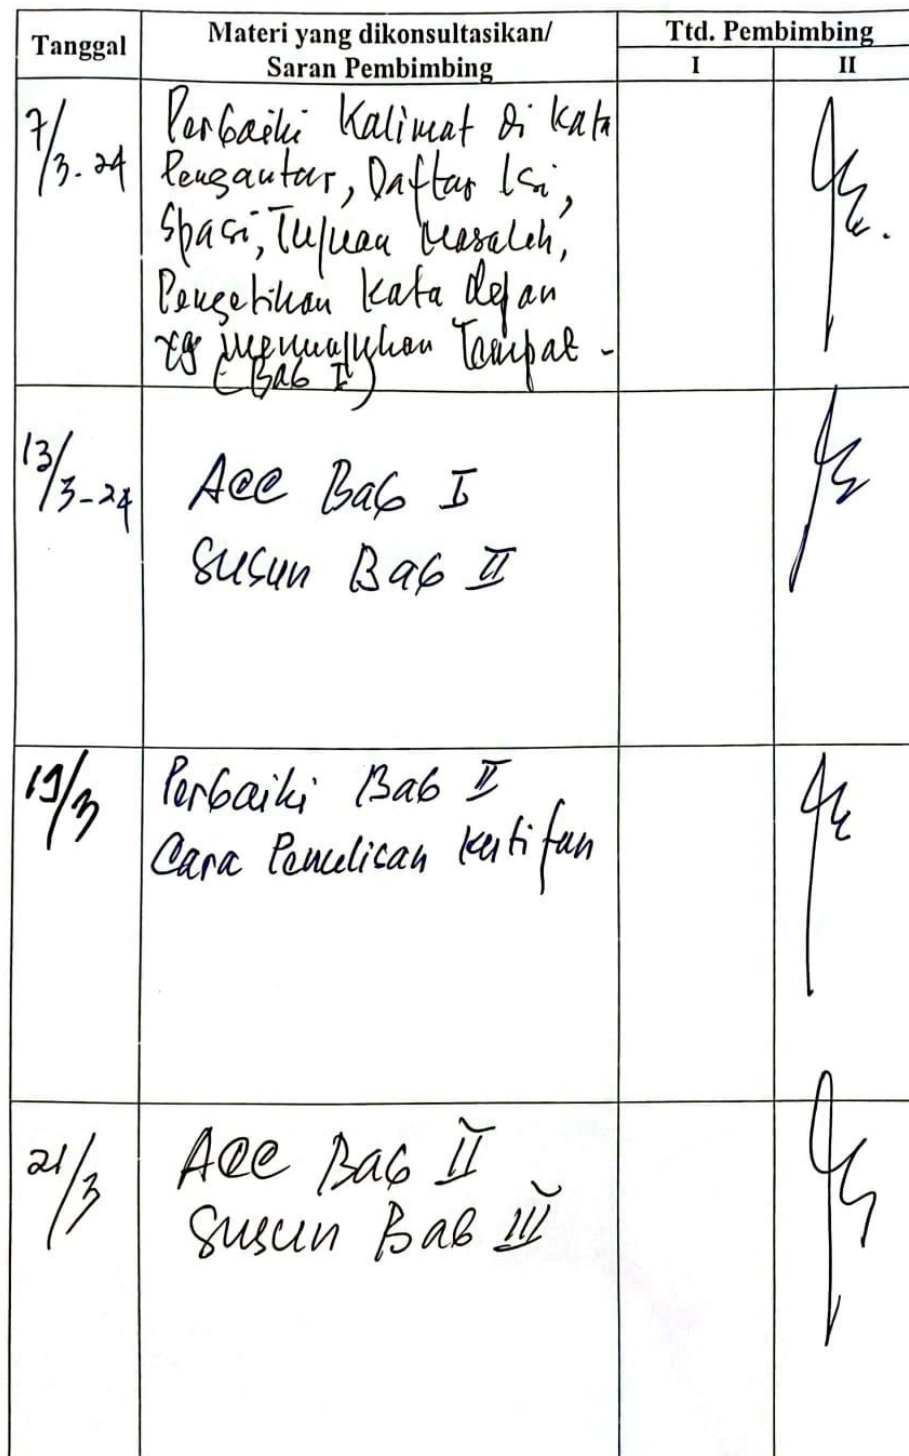 Tanggal
Materi yang dikonsultasikan/
Saran Pembimbing
Ttd. Pembimbing
I
II
7/3-24
Perbaiki Kalimat di Kata
Pengantar, Daftar Isi,
Spasi, Tujuan Masalah,
Pengetikan Kata depan
yg menunjukan Tempat -
(Bab I)
13/3-24
Acc Bab I
Susun Bab II
19/3
Perbaiki Bab II
Cara Penulisan Kutipan
21/3
Acc Bab II
Susun Bab III